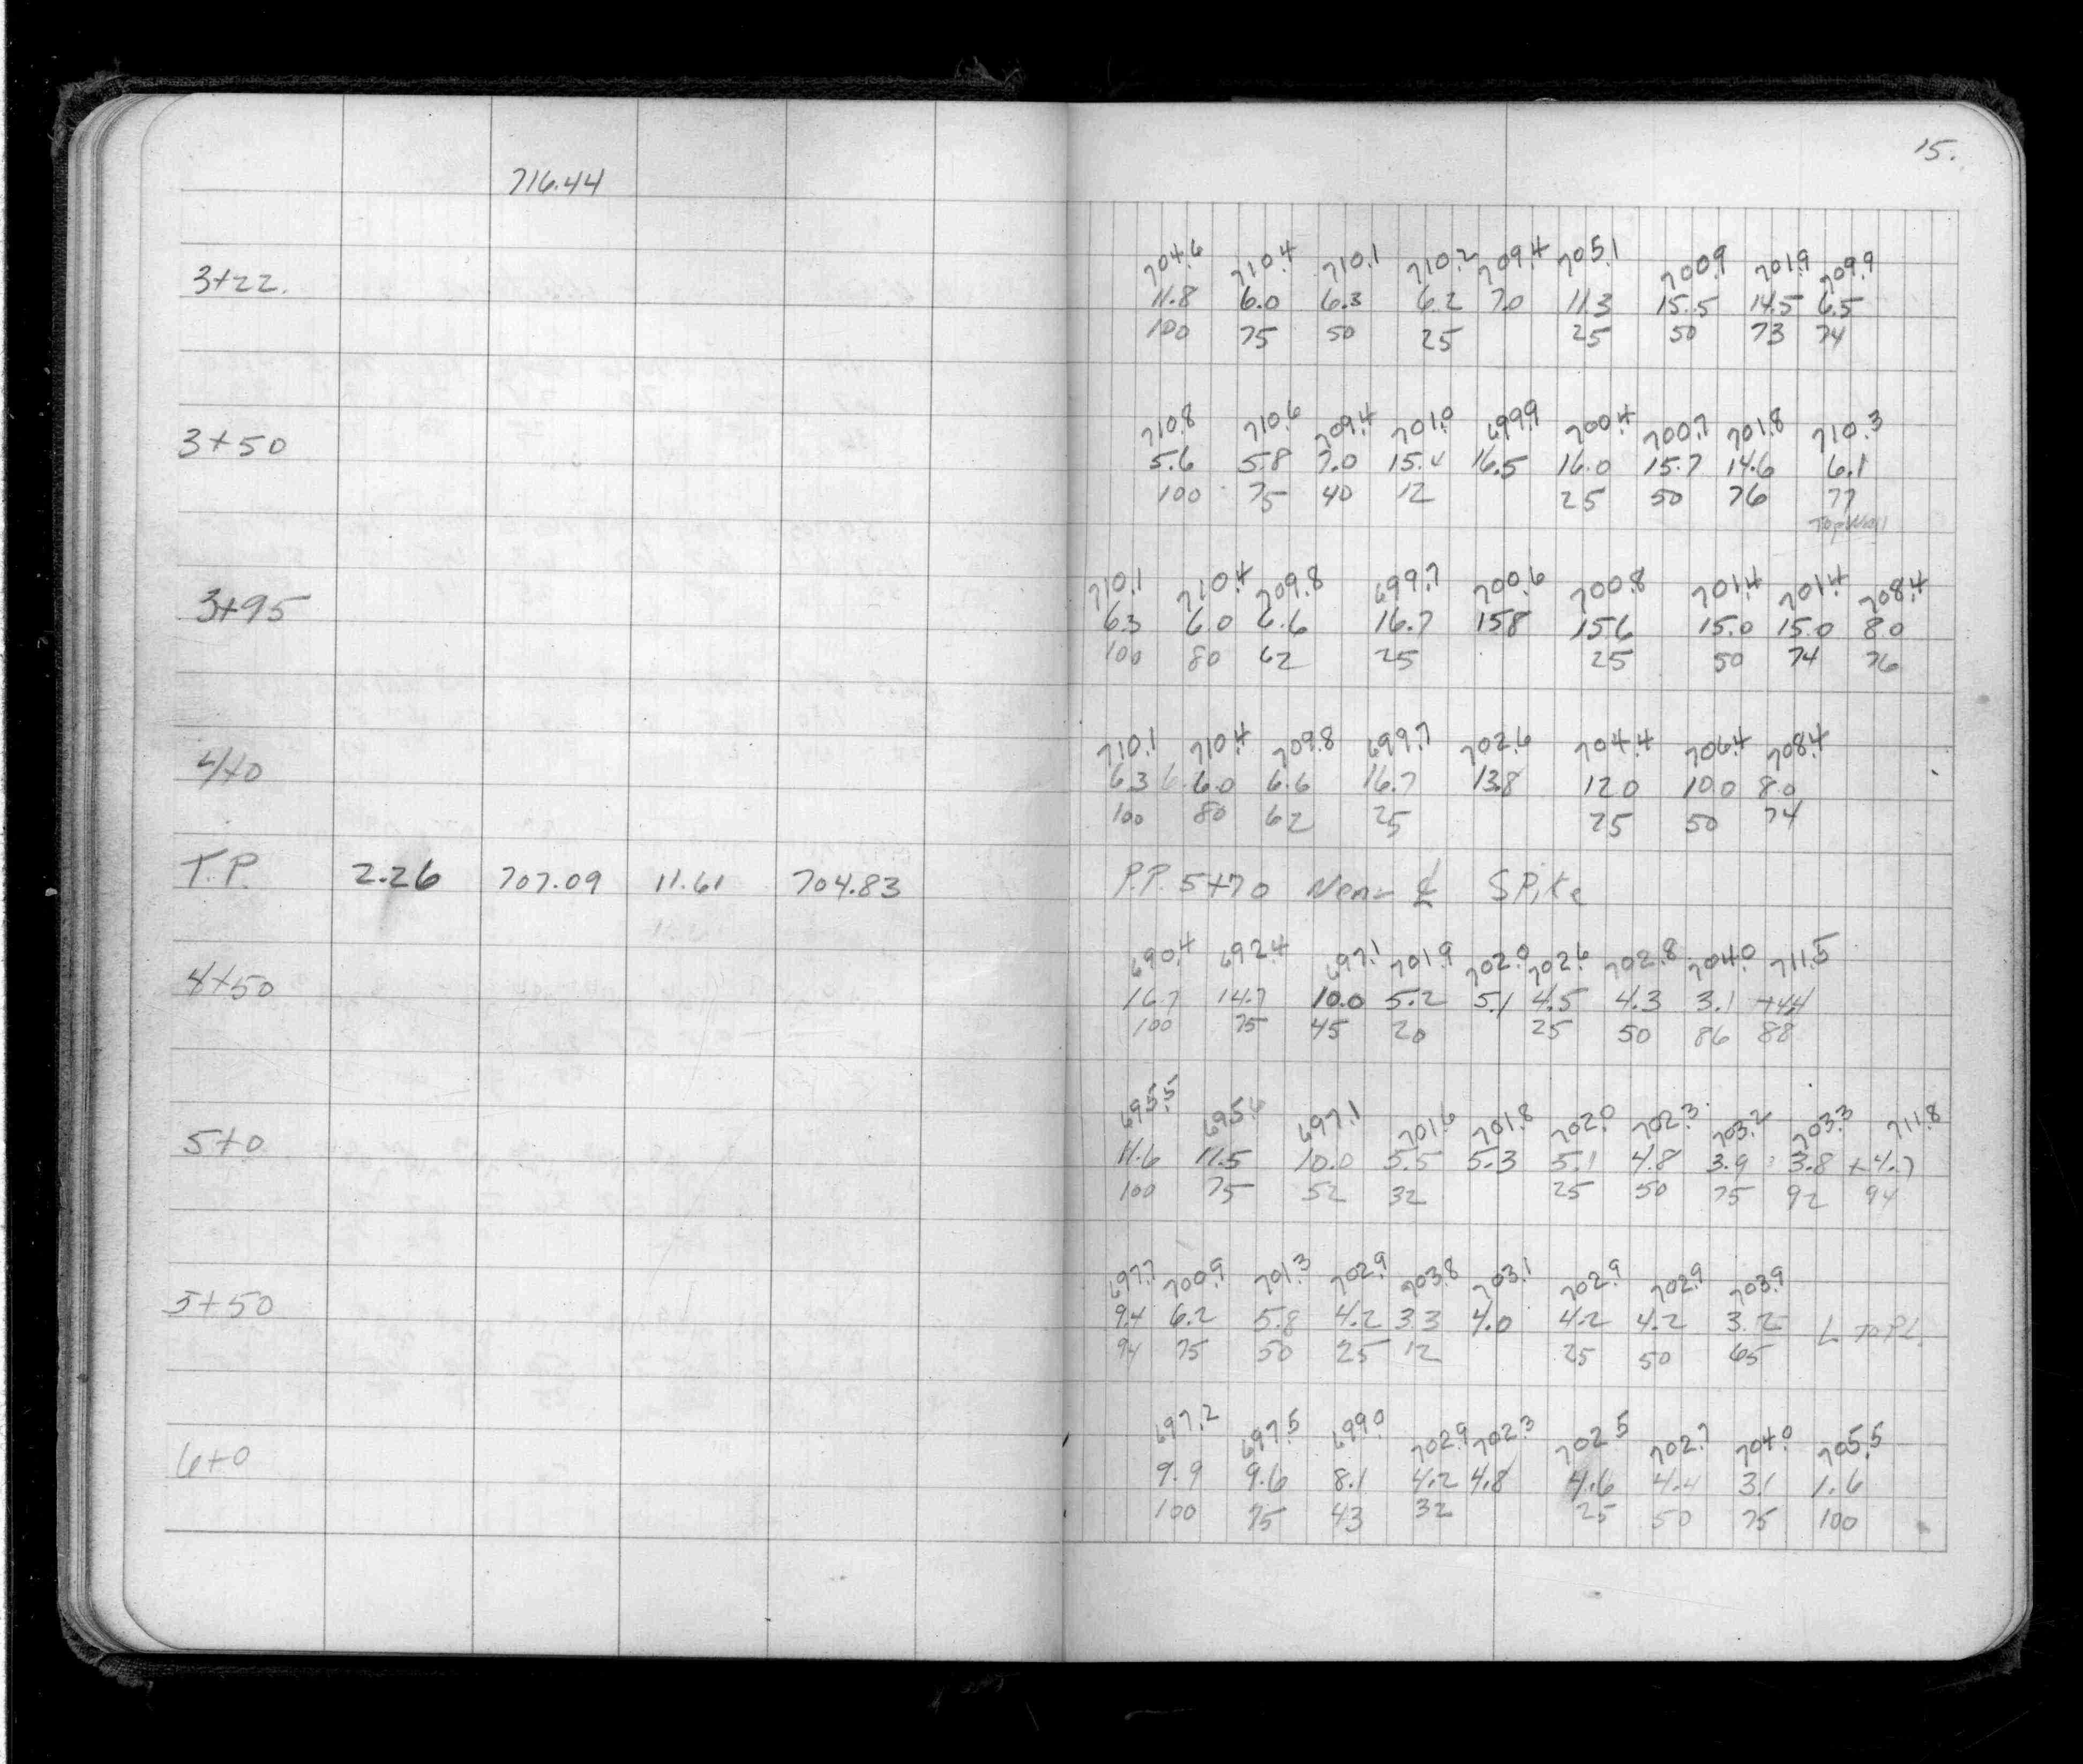 15.
716.44
704.6 710.4 710.1 710.2 709.4 705.1 700.9 701.9 709.9
3+22. 11.8 6.0 6.3 6.2 7.0 11.3 15.5 14.5 6.5
100 75 50 25 25 50 73 74
710.8 710.6 709.4 701.0 699.9 700.4 700.7 701.8 710.3
3+50 5.6 5.8 7.0 15.4 16.5 16.0 15.7 14.6 6.1
100 75 40 12 25 50 76 77
Top Wall
710.1 710.4 709.8 699.7 700.6 700.8 701.4 701.4 708.4
3+95 6.3 6.0 6.6 16.7 15.8 15.6 15.0 15.0 8.0
100 80 62 25 25 50 74 76
710.1 710.4 709.8 699.7 702.6 704.4 706.4 708.4
4+0 6.3 6.0 6.6 16.7 13.8 12.0 10.0 8.0
100 80 62 25 25 50 74
T.P. 2.26 707.09 11.61 704.83 P.P. 5+70 Near ℄ Spike
690.4 692.4 697.1 701.9 702.0 702.6 702.8 704.0 711.5
4+50 16.7 14.7 10.0 5.2 5.1 4.5 4.3 3.1 +4.4
100 75 45 20 25 50 86 88
695.5 695.6 697.1 701.6 701.8 702.0 702.3 703.2 703.3 711.8
5+0 11.6 11.5 10.0 5.5 5.3 5.1 4.8 3.9 3.8 +4.7
100 75 52 32 25 50 75 92 94
697.7 700.9 701.3 702.9 703.8 703.1 702.9 702.9 703.9
5+50 9.4 6.2 5.8 4.2 3.3 4.0 4.2 4.2 3.2 L To PL.
94 75 50 25 12 25 50 65
697.2 697.5 699.0 702.9 702.3 702.5 702.7 704.0 705.5
6+0 9.9 9.6 8.1 4.2 4.8 4.6 4.4 3.1 1.6
100 75 43 32 25 50 75 100